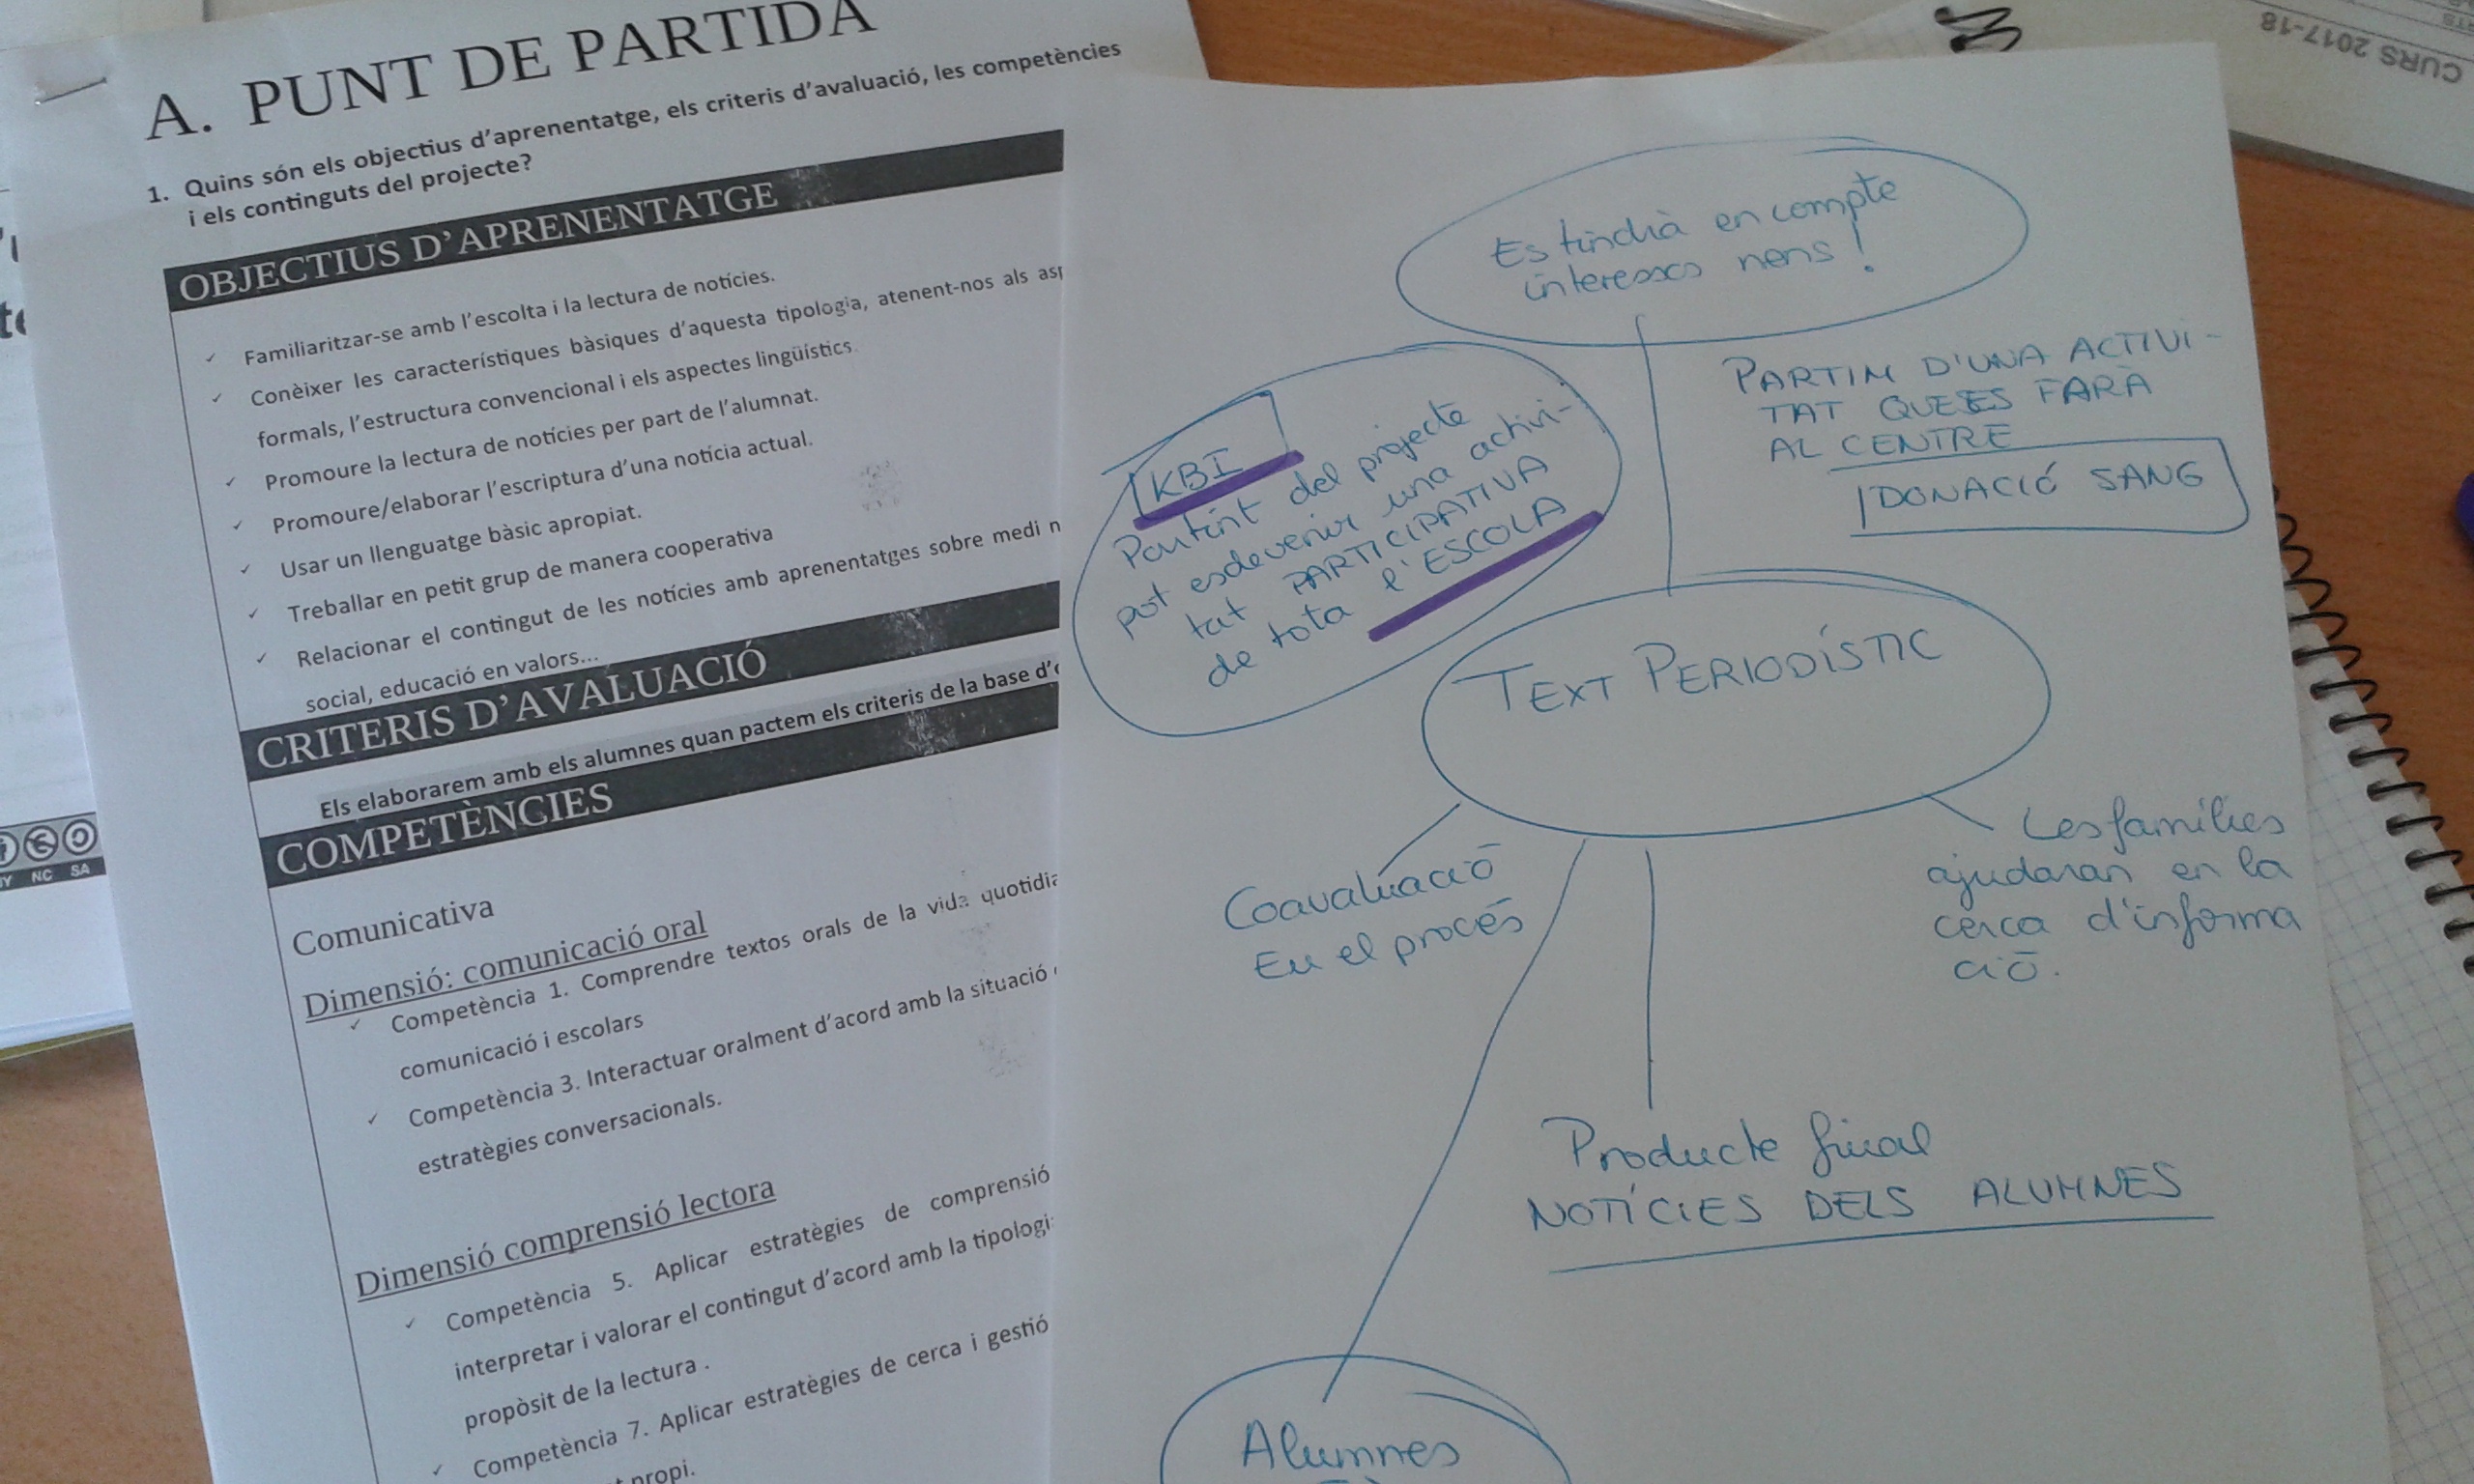 A. PUNT DE PARTIDA
1. Quins són els objectius d'aprenentatge, els criteris d'avaluació, les competències
i els continguts del projecte?
OBJECTIUS D'APRENENTATGE
✓ Familiaritzar-se amb l'escolta i la lectura de notícies.
✓ Conèixer les característiques bàsiques d'aquesta tipologia, atenent-nos als
formals, l'estructura convencional i els aspectes lingüístics.
✓ Promoure la lectura de notícies per part de l'alumnat.
✓ Promoure/elaborar l'escriptura d'una notícia actual.
✓ Usar un llenguatge bàsic apropiat.
✓ Treballar en petit grup de manera cooperativa
✓ Relacionar el contingut de les notícies amb aprenentatges sobre medi n
social, educació en valors...
CRITERIS D'AVALUACIÓ
Els elaborarem amb els alumnes quan pactem els criteris de la base d'
COMPETÈNCIES
Comunicativa
Dimensió: comunicació oral
✓ Competència 1. Comprendre textos orals de la vida quotidia
comunicació i escolars
✓ Competència 3. Interactuar oralment d'acord amb la situació
estratègies conversacionals.
Dimensió comprensió lectora
✓ Competència 5. Aplicar estratègies de comprensió
interpretar i valorar el contingut d'acord amb la tipologi
propòsit de la lectura .
✓ Competència 7. Aplicar estratègies de cerca i gestió
propi.
Es tindrà en compte
interessos nens!
KBI
Partint del projecte
pot esdevenir una activi-
tat PARTICIPATIVA
de tota l'ESCOLA
PARTIM D'UNA ACTIVI-
TAT QUE ES FARÀ
AL CENTRE
DONACIÓ SANG
TEXT PERIODÍSTIC
Coavaluació
En el procés
Les famílies
ajudaran en la
cerca d'informa
ció.
Producte final
NOTÍCIES DELS ALUMNES
Alumnes
CURS 2017-18
BY NC SA